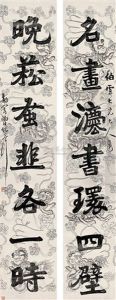 名畫灋書環四壁
晚菘蚤韭各一時